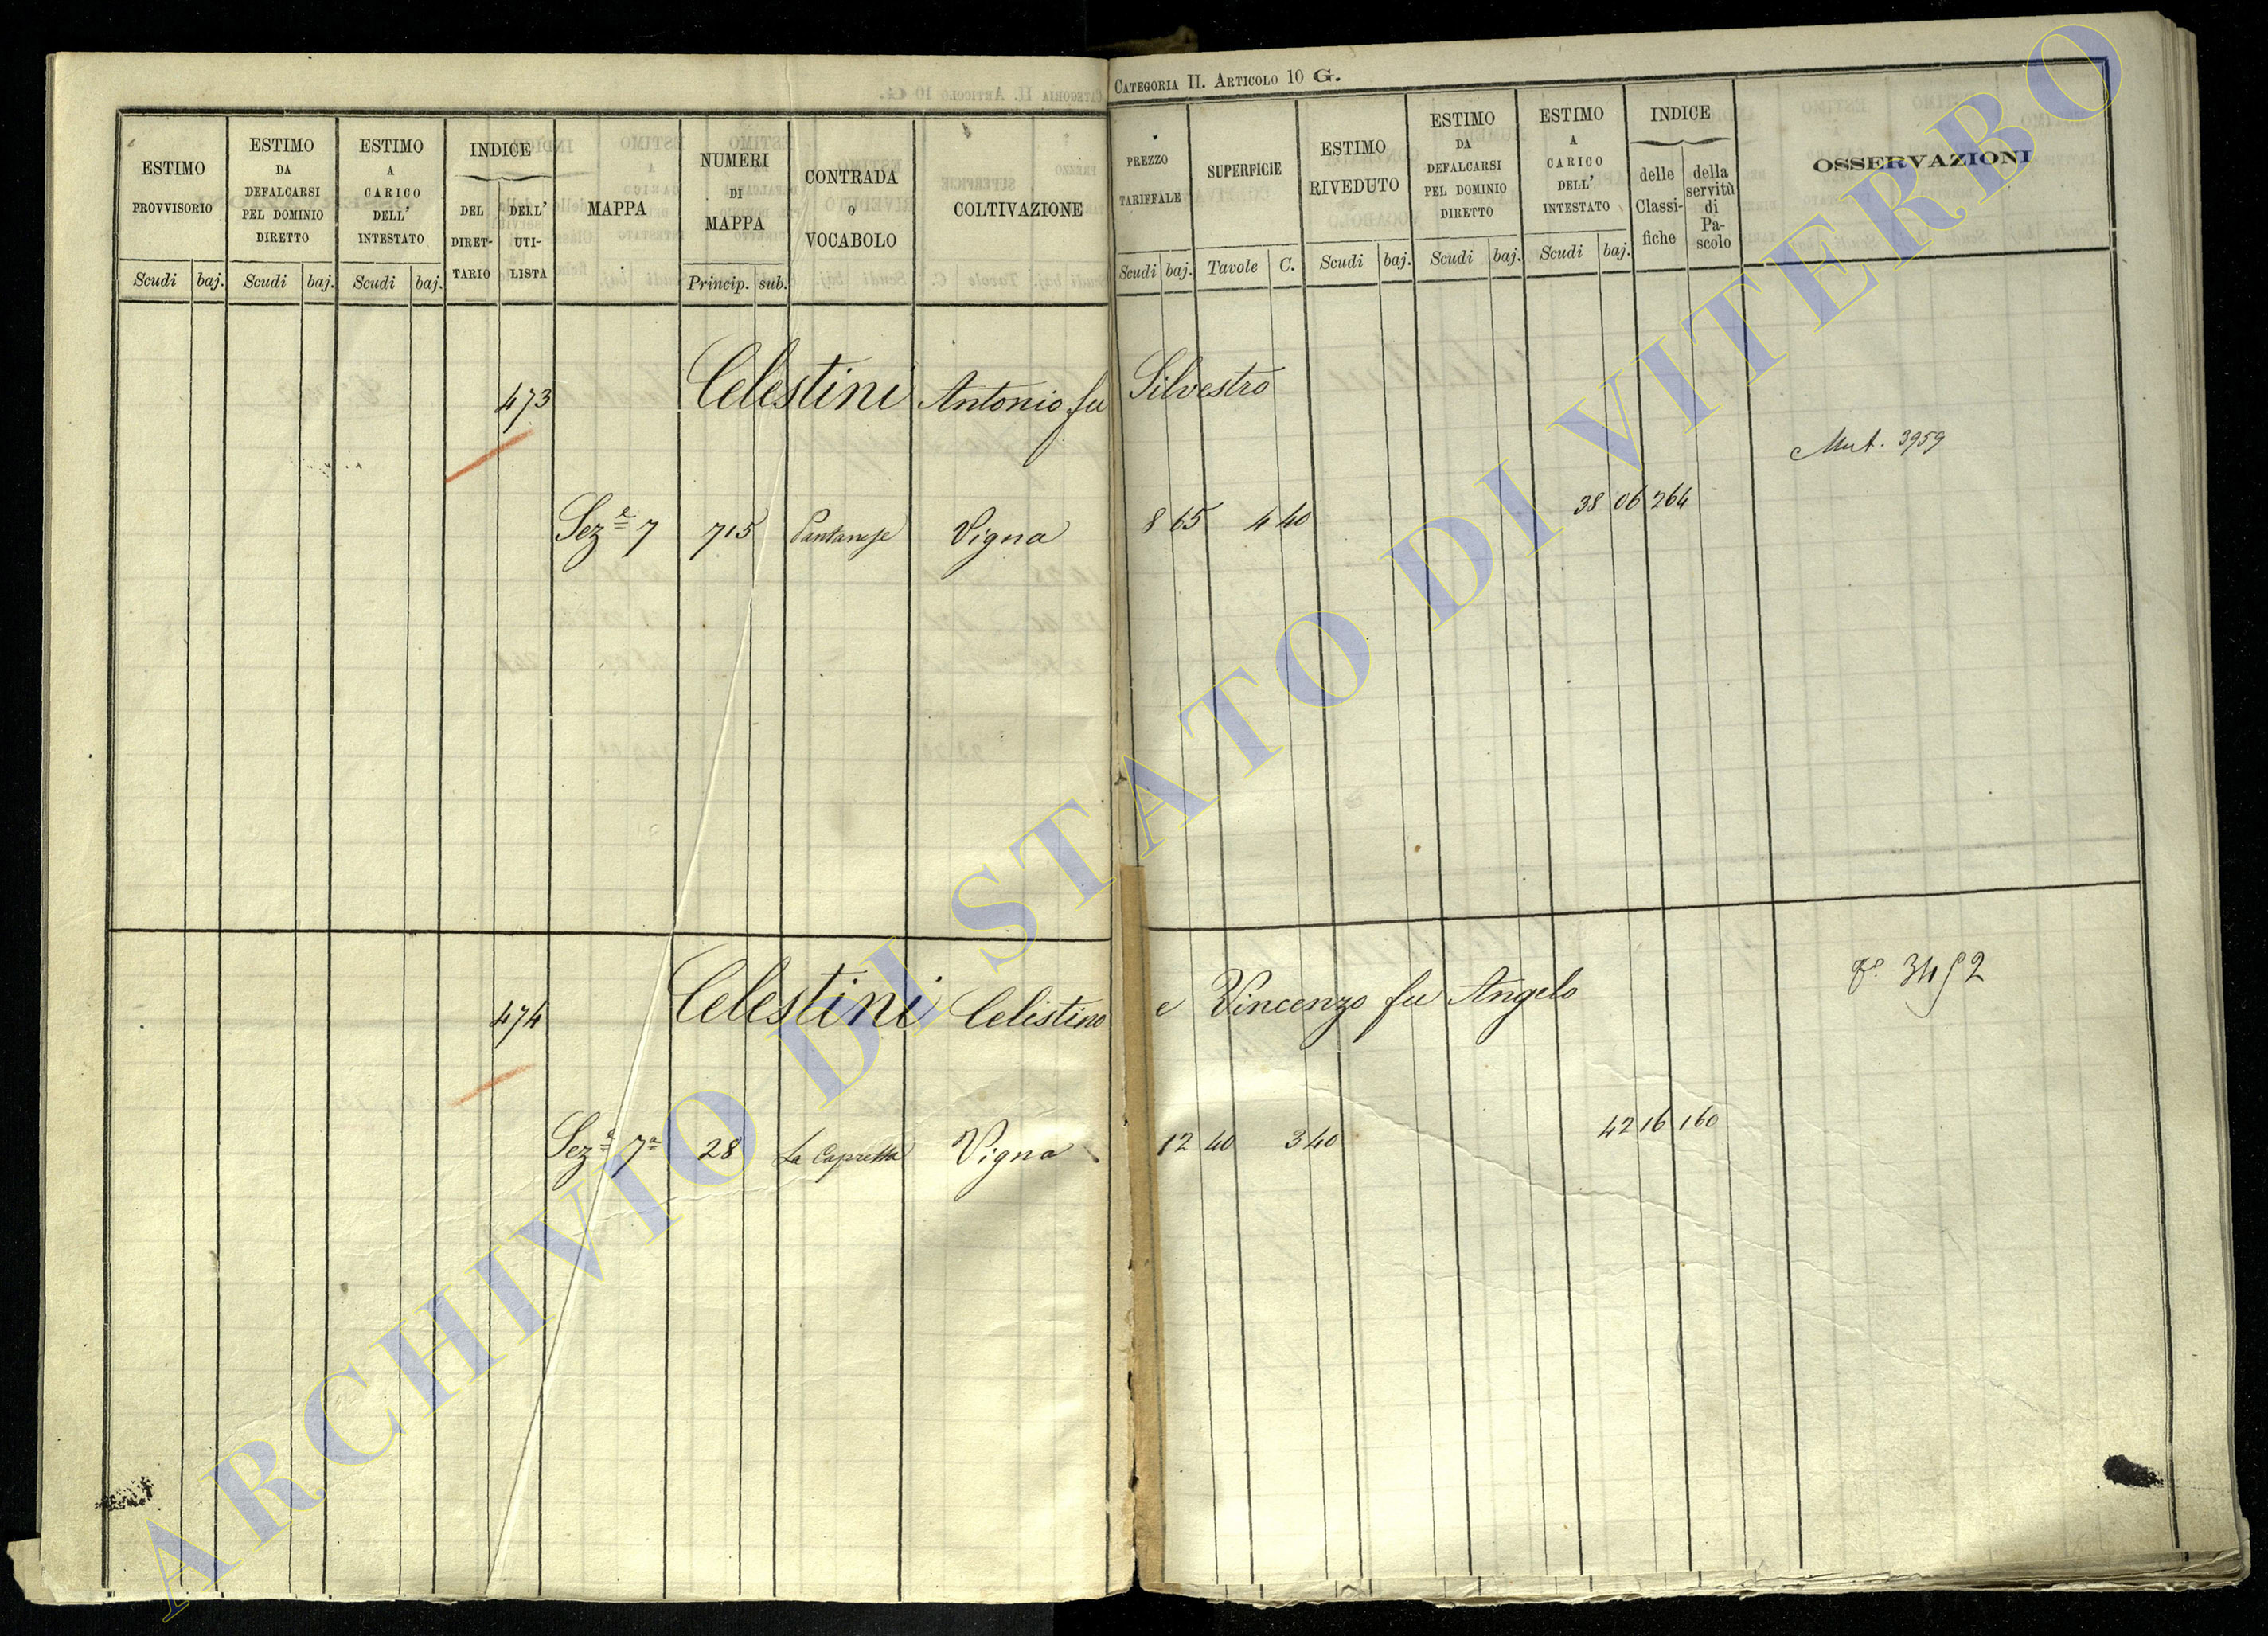 CATEGORIA II. ARTICOLO 10 G.
ESTIMO PROVVISORIO
Scudi baj.
ESTIMO DA DEFALCARSI PEL DOMINIO DIRETTO
Scudi baj.
ESTIMO A CARICO DELL' INTESTATO
Scudi baj.
INDICE
DEL DIRET-TARIO
DELL' UTI-LISTA
MAPPA
NUMERI DI MAPPA
Princip. sub.
CONTRADA O VOCABOLO
COLTIVAZIONE
PREZZO TARIFFALE
Scudi baj.
SUPERFICIE
Tavole C.
ESTIMO RIVEDUTO
Scudi baj.
ESTIMO DA DEFALCARSI PEL DOMINIO DIRETTO
Scudi baj.
ESTIMO A CARICO DELL' INTESTATO
Scudi baj.
INDICE
delle Classi-fiche
della servitù di Pa-scolo
OSSERVAZIONI
473 Celestini Antonio fu Silvestro
Mut. 3959
Sez.e 7 715 Pantanese Vigna 8 65 4 40 38 06 264
474 Celestini Celistino e Vincenzo fu Angelo
3492
Sez.e 7a 28 La Capretta Vigna 12 40 3 40 42 16 160
ARCHIVIO DI STATO DI VITERBO